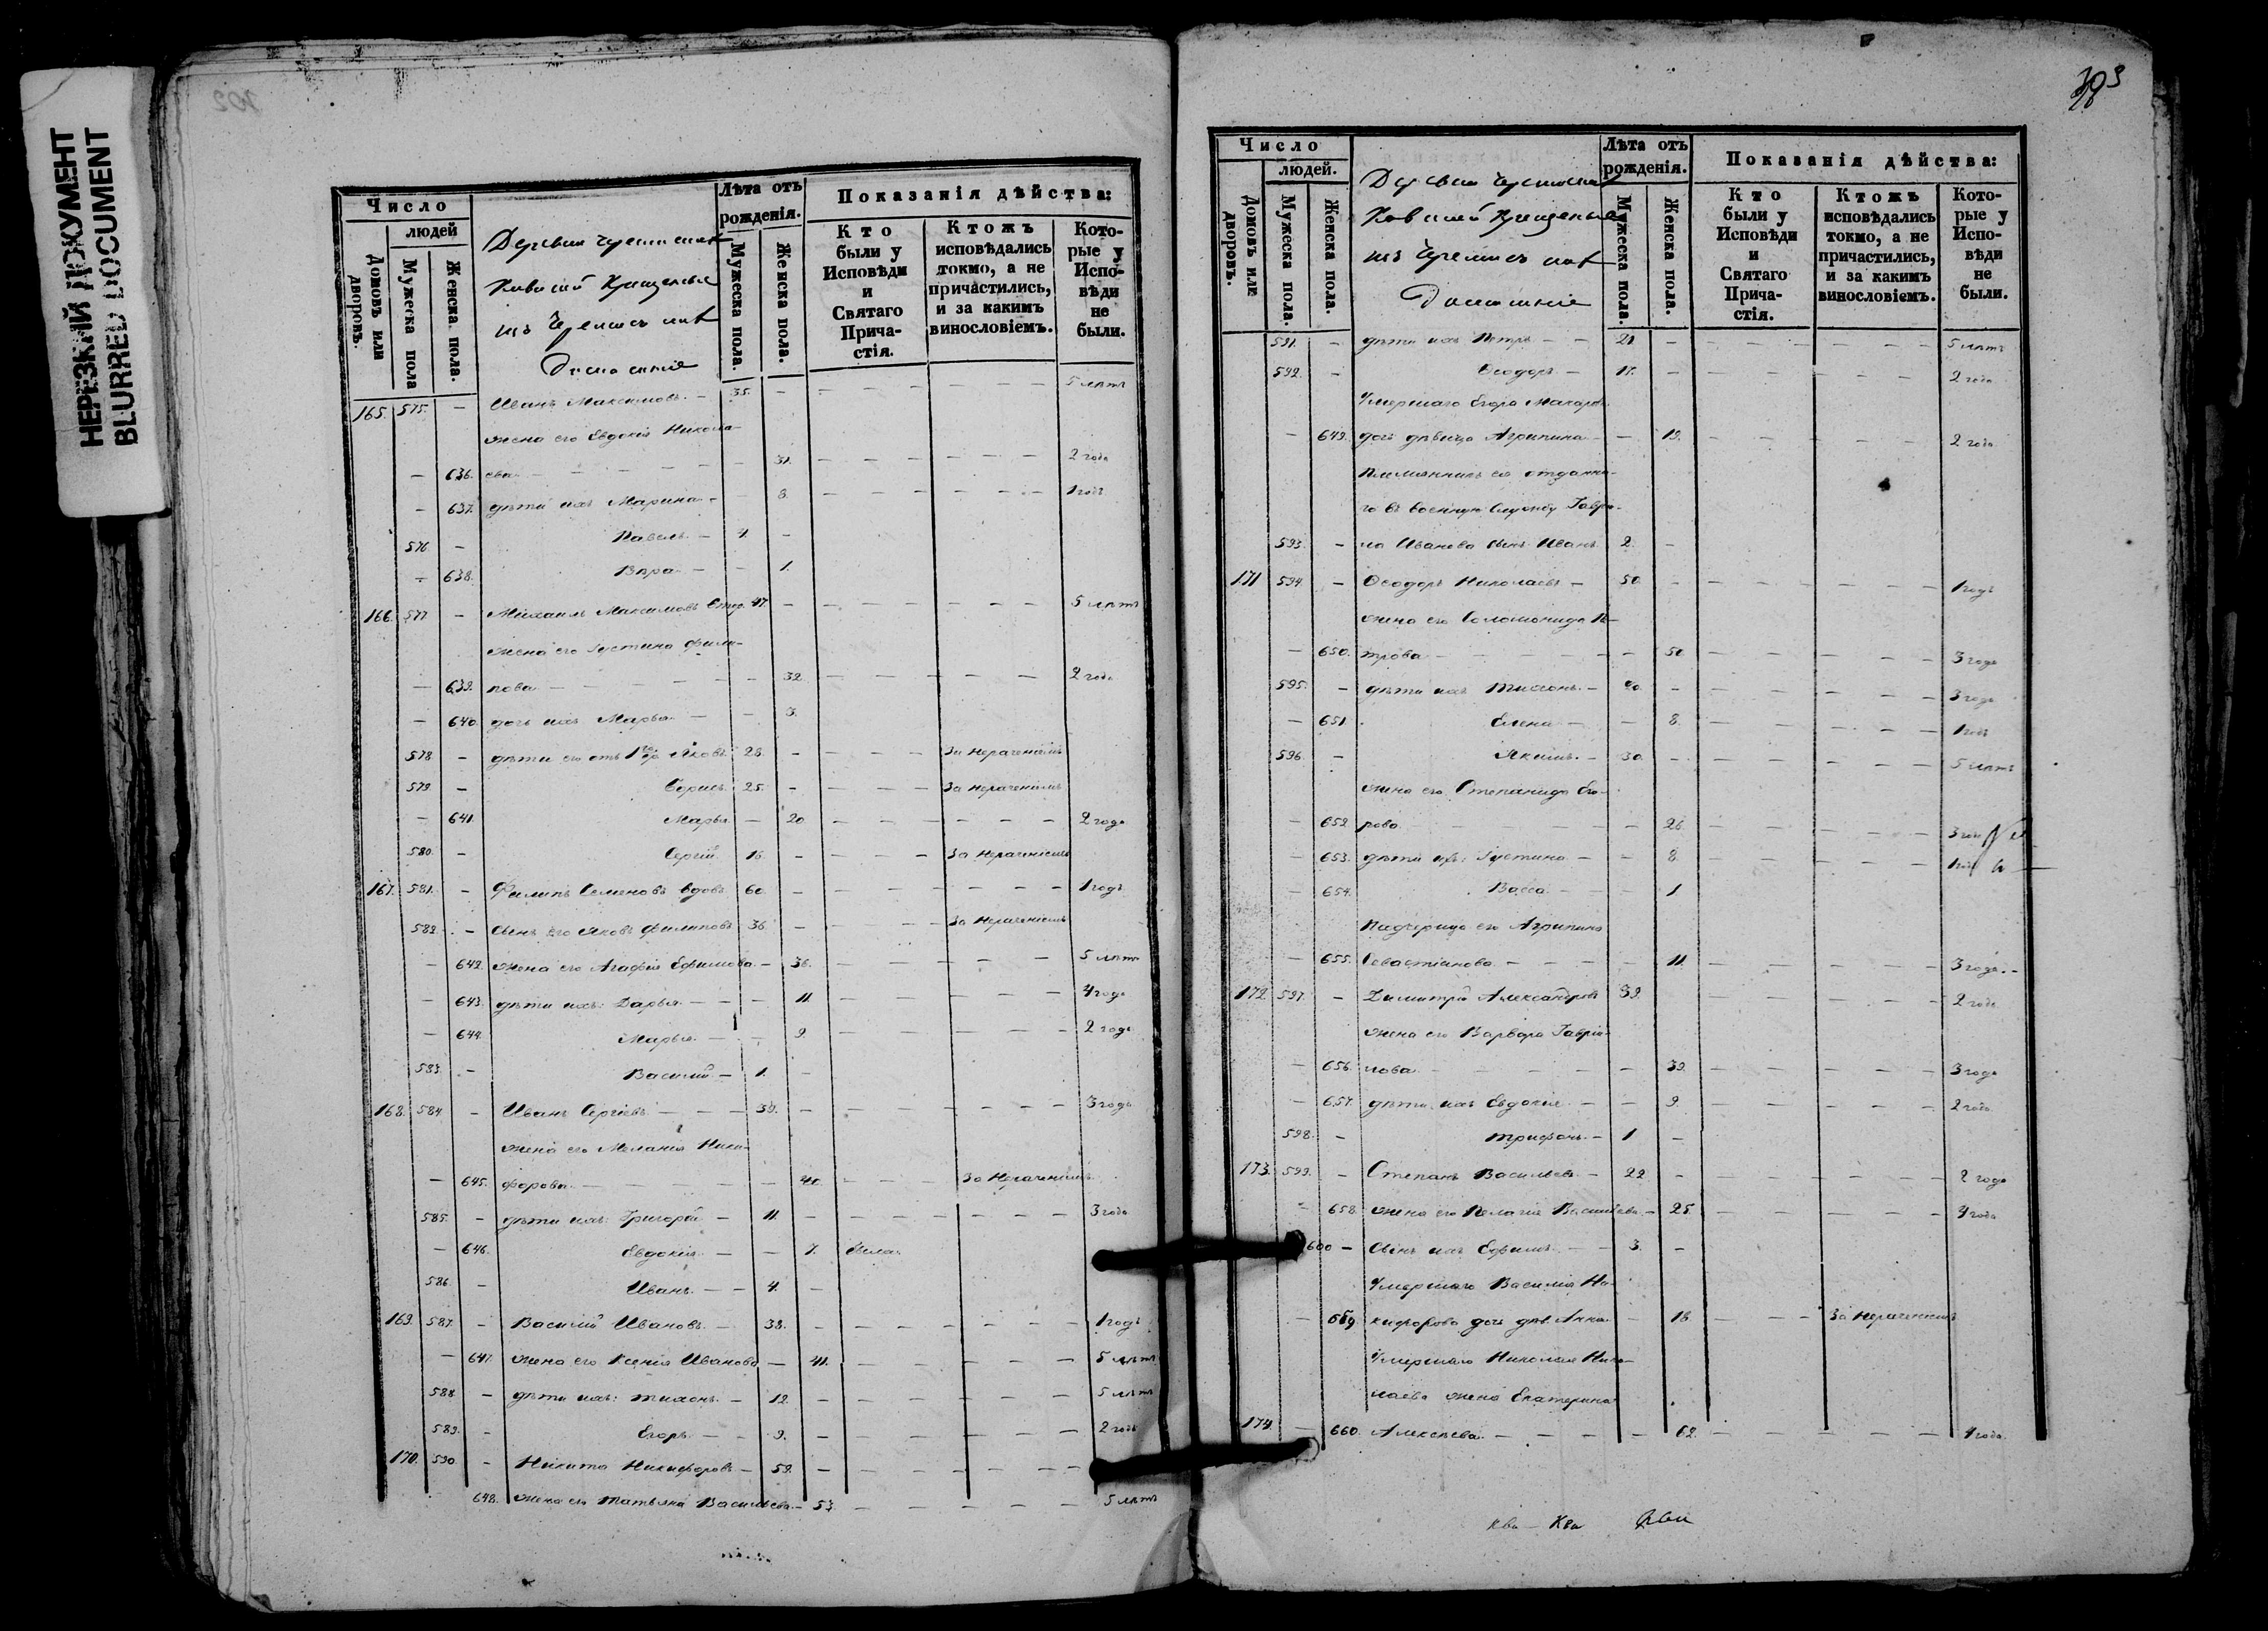 НЕРЕЗКИЙ ДОКУМЕНТ
BLURRED DOCUMENT
102
Число
людей
Домовъ или дворовъ.
Мужеска пола
Женска пола.
Деревня
Крещеные
изъ Черемисъ
Домашніе
Лѣта отъ рожденія.
Мужеска пола.
Женска пола.
Показанія дѣйства:
Кто были у Исповѣди и Святаго Прича-стія.
Ктожъ исповѣдались токмо, а не причастились, и за какимъ винословіемъ.
Кото-рые у Испо-вѣди не были.
165. 575. – Иванъ Максимовъ. – 35. – 5 лѣтъ
жена его Евдокія Никола-
– 636. ева – 31. – 2 года
– 637. дѣти ихъ Марина – 8. – 1 годъ
576 – Павелъ. – 4. –
– 638. Вѣра – 1.
166. 577 – Михаилъ Максимовъ 47. – 5 лѣтъ
жена его Густина Фили-
– 639. пова – 32. – 2 года
– 640. дочь ихъ Марья – 3.
578 – дѣти его отъ 1го бр. Яковъ 28. – За нераченіемъ
579. – Борисъ 25. – За нераченіемъ
– 641. Марья – 20 – 2 года
580. – Сергій 16. – За нераченіемъ
167. 581. – Филипъ Семеновъ вдовъ 60. – 1 годъ
582. – Сынъ его Яковъ Филиповъ 36. – За нераченіемъ
– 642. жена его Агафія Ефимова – 36. – 5 лѣтъ
– 643. дѣти ихъ: Дарья – 11. – 4 года
– 644. Марья – 9. – 2 года
583. – Василій – 1. –
168. 584. – Иванъ Сергіевъ – 39. – 3 года
жена его Меланія Ники-
– 645. форова – За нераченіемъ
585. – дѣти ихъ: Григорій – 11. – 3 года
– 646. Евдокія – 7. была
586. – Иванъ – 4. –
169. 587. – Василій Ивановъ – 38. – 1 годъ
– 647. жена его Ксенія Иванова – 41. – 5 лѣтъ
588. – дѣти ихъ: Тихонъ – 12. – 5 лѣтъ
589. – Егоръ – 9. – 2 года
170. 590 – Никита Никифоровъ – 59. –
648. жена его Татьяна Васильева – 53. – 5 лѣтъ
Число
людей.
Домовъ или дворовъ.
Мужеска пола.
Женска пола.
Деревня
Крещеные
изъ Черемисъ
Домашніе
Лѣта отъ рожденія.
Мужеска пола.
Женска пола.
Показанія дѣйства:
Кто были у Исповѣди и Святаго Прича-стія.
Ктожъ исповѣдались токмо, а не причастились, и за какимъ винословіемъ.
Кото-рые у Испо-вѣди не были.
591. – дѣти ихъ Петръ – 21 – 5 лѣтъ
592. – Ѳеодоръ – 17. – 2 года
Умершаго Егора Макаров.
– 649. дочь дѣвица Агрипина – 19. – 2 года
Племянникъ его отданна-
го въ военную службу Гаври-
593. – ла Иванова сынъ Иванъ 2. –
171 594. – Ѳеодоръ Николаевъ – 50. – 1 годъ
жена его Соломонида Пе-
– 650. трова – 50 – 3 года
595. – дѣти ихъ Тихонъ – – 3 года
– 651 Елена – 8. – 1 годъ
596. – Якимъ – 30. – 5 лѣтъ
жена его Степанида Его-
– 652 рова – 26. – 3 года
– 653. дѣти ихъ: Густина – 8. – 1 годъ
– 654. Васса – 1
Падчерица его Агрипина
– 655. Севастіанова – 11. – 3 года
172. 597. – Димитрій Александровъ 39. – 2 года
жена его Варвара Гаврі-
– 656. лова – 39. – 3 года
– 657. дѣти ихъ Евдокія – 9. – 2 года
598. – Трифонъ – 1 –
173. 599. – Степанъ Васильевъ – 22 – 2 года
– 658. жена его Пелагія Васильева – 25. – 4 года
600 – сынъ ихъ Ефимъ – 3. –
Умершаго Василія Ни-
– 659 кифорова дочь дѣв. Анна – 18. – За нераченіемъ
Умершаго Николая Нико-
лаева жена Екатерина
174. – 660. Алексѣева – 62. – 4 года